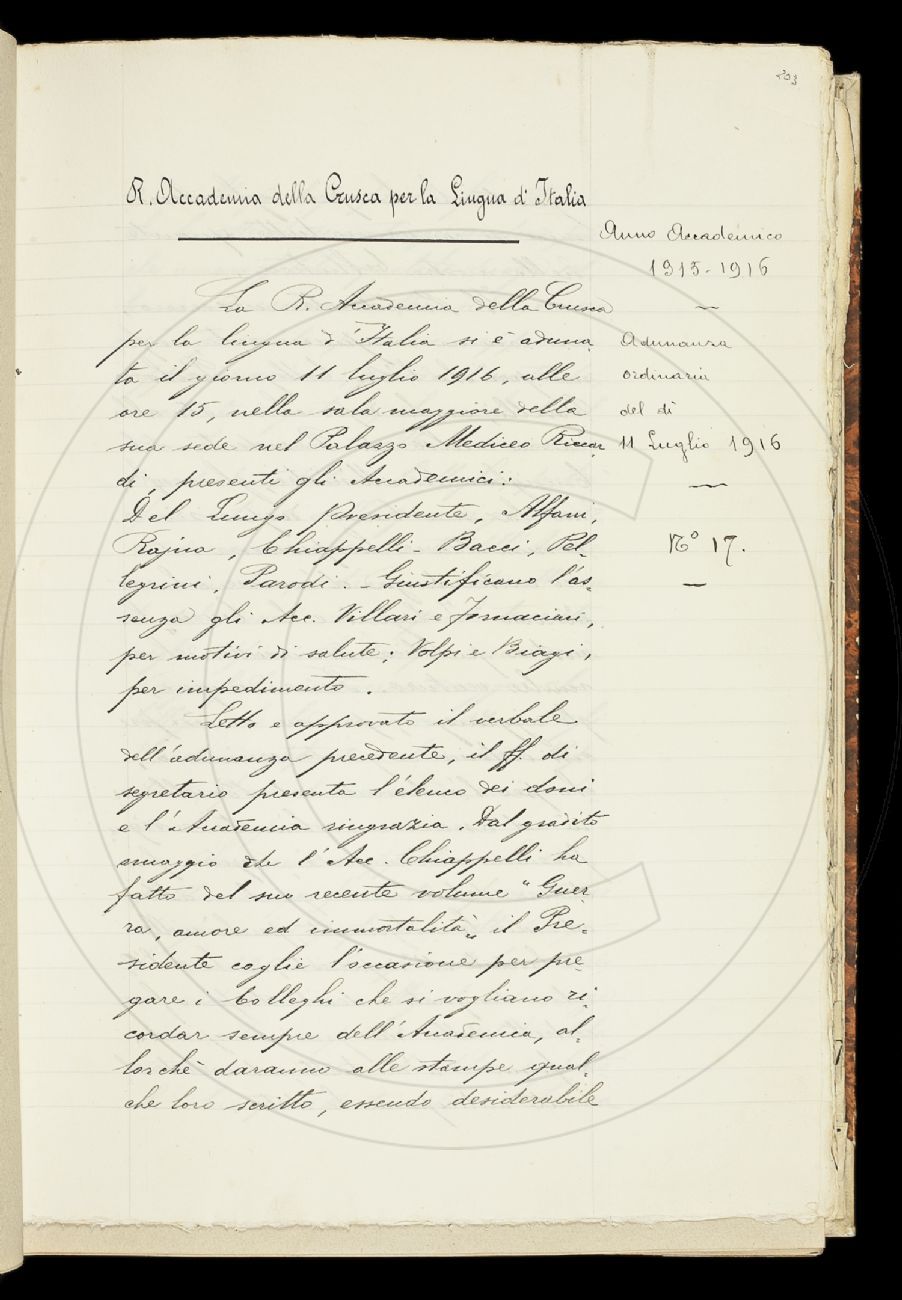 203
R. Accademia della Crusca per la Lingua d'Italia
Anno Accademico
1915-1916
Adunanza
ordinaria
del dì
11 Luglio 1916
N.º 17.
La R. Accademia della Crusca
per la lingua d'Italia si è aduna
ta il giorno 11 luglio 1916, alle
ore 15, nella sala maggiore della
sua sede nel Palazzo Mediceo Riccar
di, presenti gli Accademici:
Del Lungo Presidente, Alfani,
Rajna, Chiappelli - Bacci, Pel-
legrini, Parodi. - Giustificano l'as-
senza gli Acc. Villari e Fornaciari,
per motivi di salute; Volpi e Biagi,
per impedimento.
Letto e approvato il verbale
dell'adunanza precedente, il ff. di
segretario presenta l'elenco dei doni
e l'Accademia ringrazia. Dal gradito
omaggio che l'Acc. Chiappelli ha
fatto del suo recente volume "Guer
ra, amore ed immortalità„ il Pre-
sidente coglie l'occasione per pre-
gare i Colleghi che si vogliano ri-
cordar sempre dell'Accademia, al-
lorchè daranno alle stampe qual-
che loro scritto, essendo desiderabile